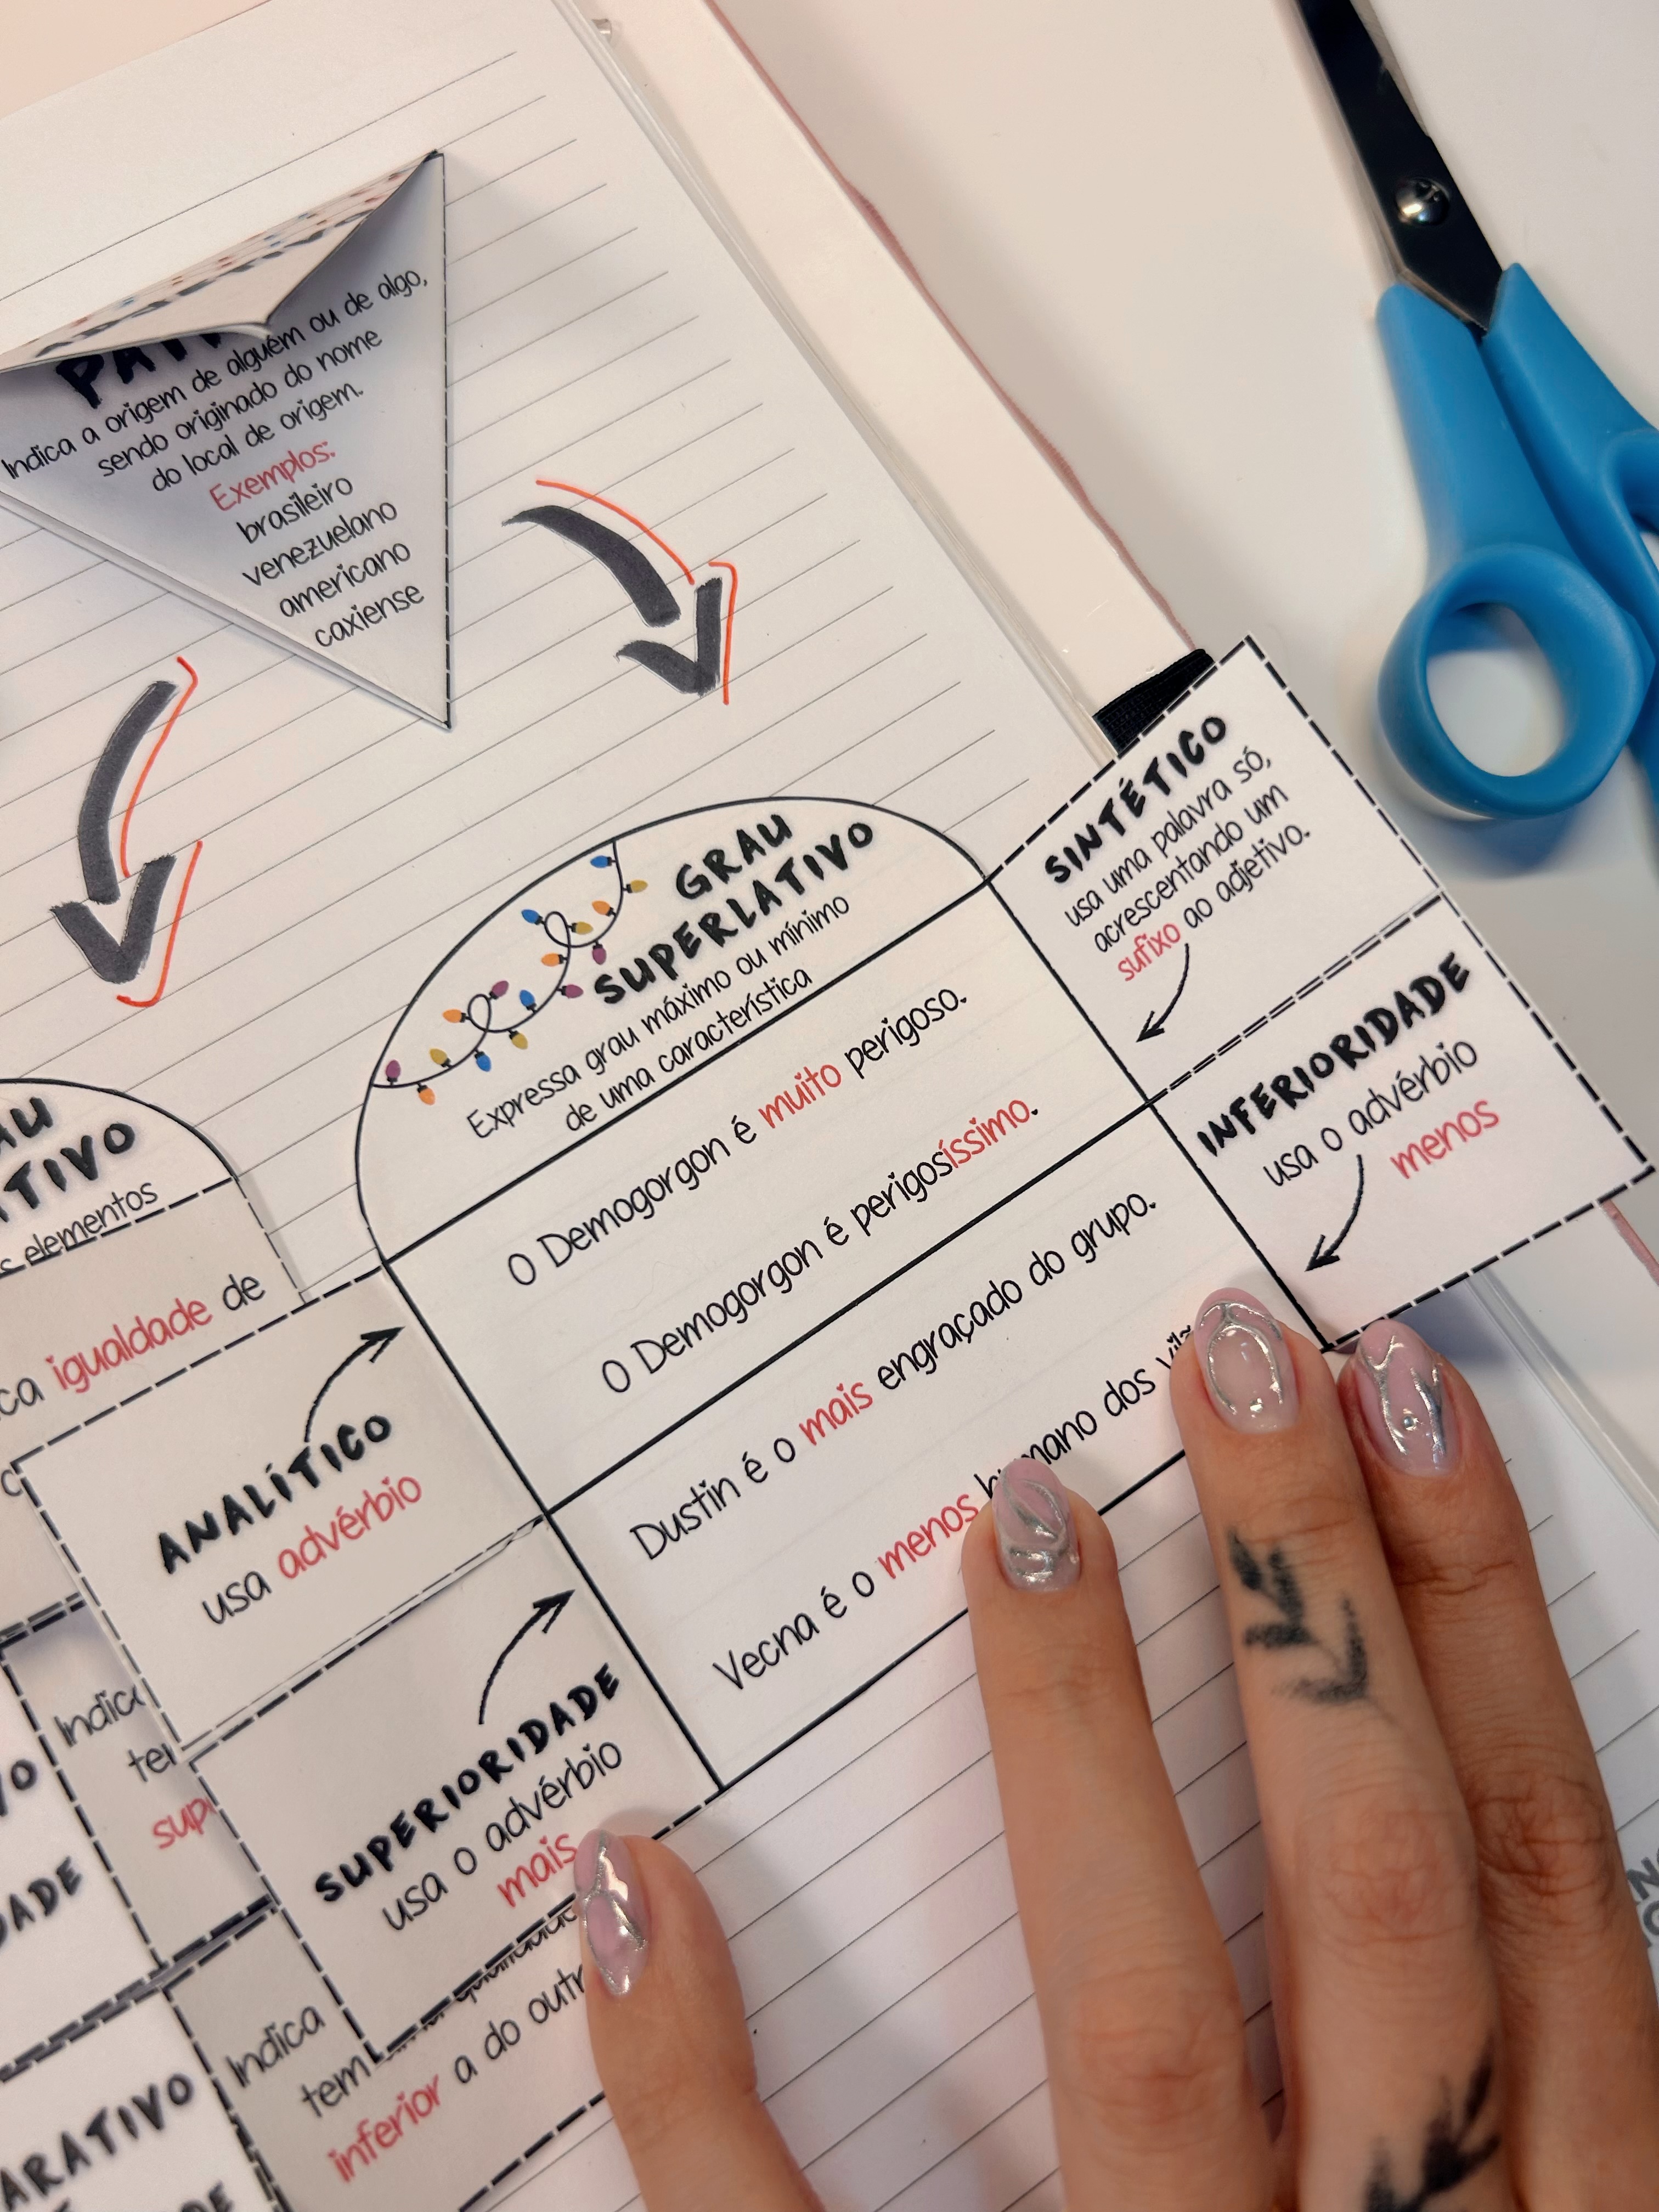 Indica a origem de alguém ou de algo,
sendo originado do nome
do local de origem.
Exemplos:
brasileiro
venezuelano
americano
caxiense
GRAU
SUPERLATIVO
Expressa grau máximo ou mínimo
de uma característica
O Demogorgon é muito perigoso.
O Demogorgon é perigosíssimo.
Dustin é o mais engraçado do grupo.
Vecna é o menos humano dos
SINTÉTICO
usa uma palavra só,
acrescentando um
sufixo ao adjetivo.
INFERIORIDADE
usa o advérbio
menos
ANALÍTICO
usa advérbio
SUPERIORIDADE
usa o advérbio
mais
elementos
igualdade de
Indica
tem
inferior a do